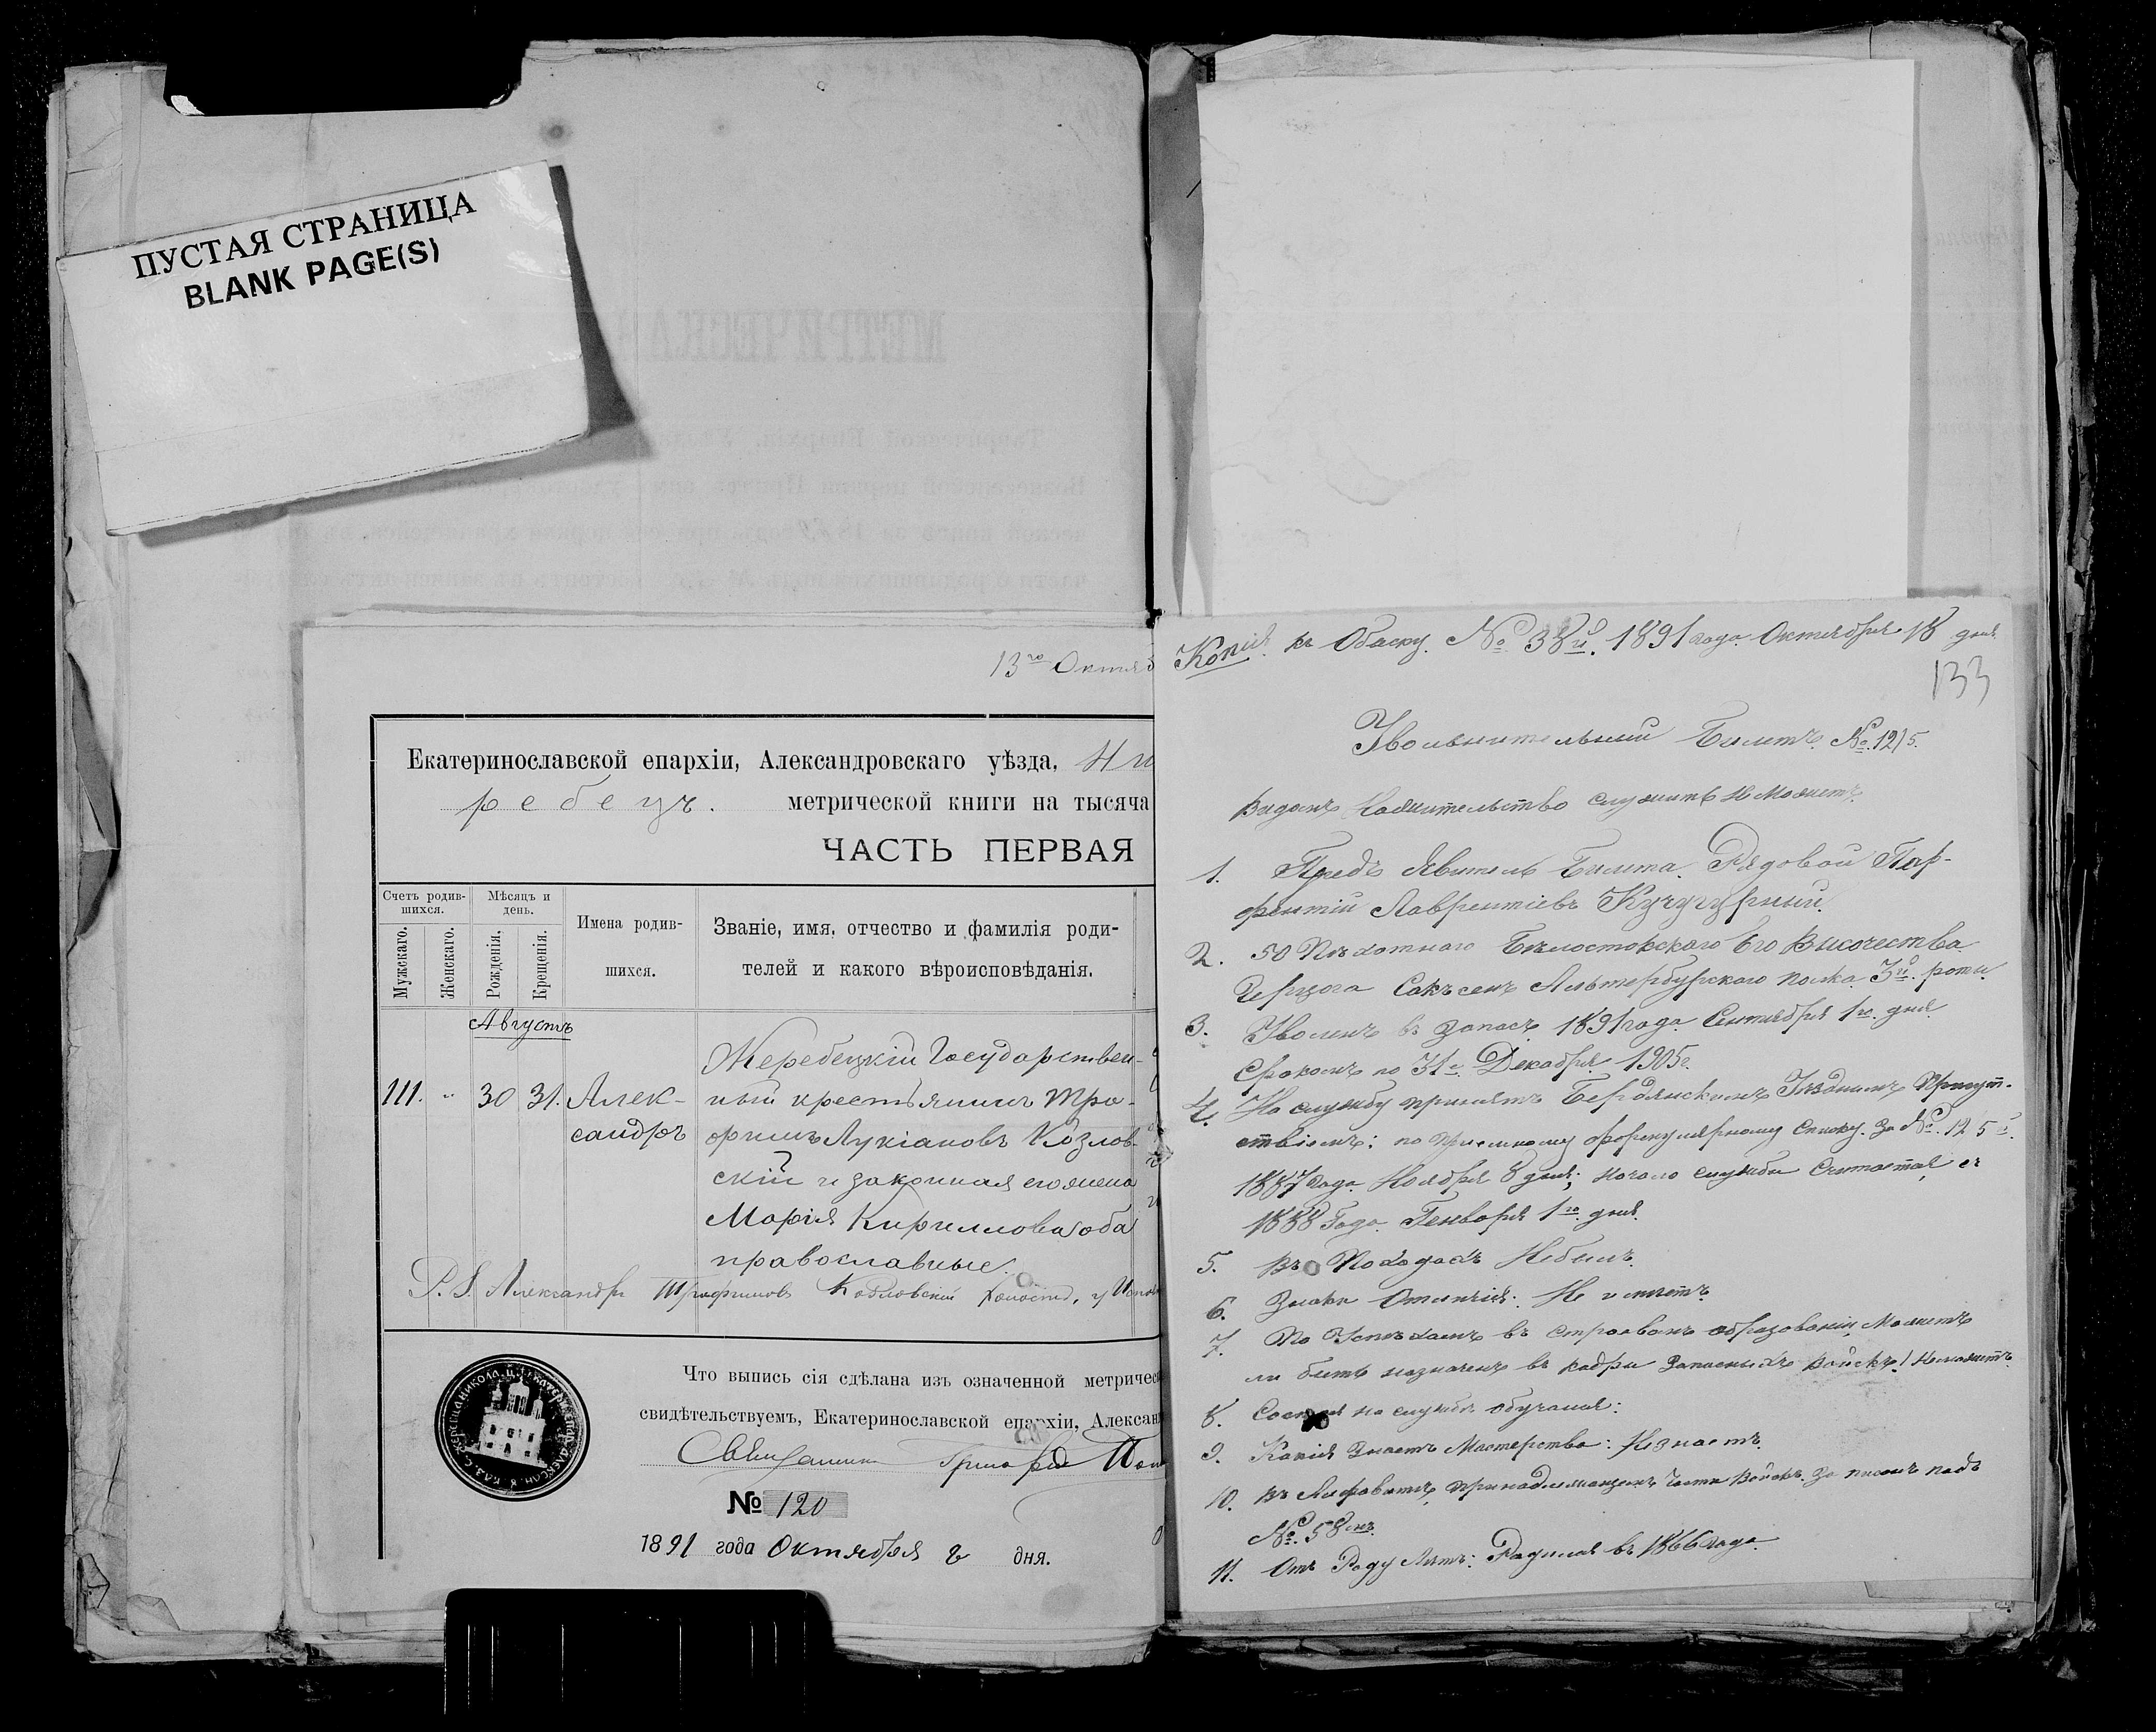 ПУСТАЯ СТРАНИЦА
BLANK PAGE(S)
13го Октяб
Екатеринославской епархіи, Александровскаго уѣзда,
ребецъ. метрической книги на тысяча
ЧАСТЬ ПЕРВАЯ
Счетъ родив-
шихся.
Мужскаго.
Женскаго.
Мѣсяцъ и
день.
Рожденія.
Крещенія.
Имена родив-
шихся.
Званіе, имя, отчество и фамилія роди-
телей и какого вѣроисповѣданія.
Августъ
111. „ 30 31. Алек-
сандръ
Жеребецкій Государствен-
ный крестьянинъ Тро-
фимъ Лукіановъ Козлов-
скій и законная его жена
Марія Кириллова оба
православные.
P.S. Александръ Трофимовъ Козловскій холостъ, у
Что выпись сія сдѣлана изъ означенной метричес
свидѣтельствуемъ, Екатеринославской епархіи, Алексан
Священникъ Григорій Поп
№ 120
1891 года Октября 2 дня.
Копія къ Обыску № 38й. 1891 года Октября 18 дня
133
Увольнительный Билетъ № 1215.
Видомъ Нажительство служить Не Можетъ.
1. Предъ Явитель Билета Рядовой Пар-
фентій Лаврентіевъ Кучугурный.
2. 50 Пѣхотнаго Бѣлостокскаго Его Высочества
Герцога Саксенъ Альтербургскаго полка 3й роты
3. Уволенъ въ запасъ 1891 года Сентября 1го дня
Срокомъ по 31е Декабря 1905г.
4. На службу принятъ Бердянскимъ Уѣзднымъ Присут-
ствіемъ: по пріемному формулярному Списку за № 125й.
1887 года Ноября 8 дня; начало службы Считается съ
1888 Года Генваря 1го дня.
5. Въ Походахъ Небылъ.
6. Знаки Отличія: Не имеетъ
7. По Успѣхамъ въ строевомъ образованіи Можетъ
ли быть назначенъ въ кадры Запасныхъ Войскъ! Неможетъ.
8. Состоя на службѣ обучался:
9. Какія Знаетъ Мастерства: Незнаетъ.
10. Въ Алфавитѣ принадлежащемъ Части Войскъ Записанъ подъ
№ 58мъ
11. Отъ Роду Лѣтъ: Родился въ 1866 года.